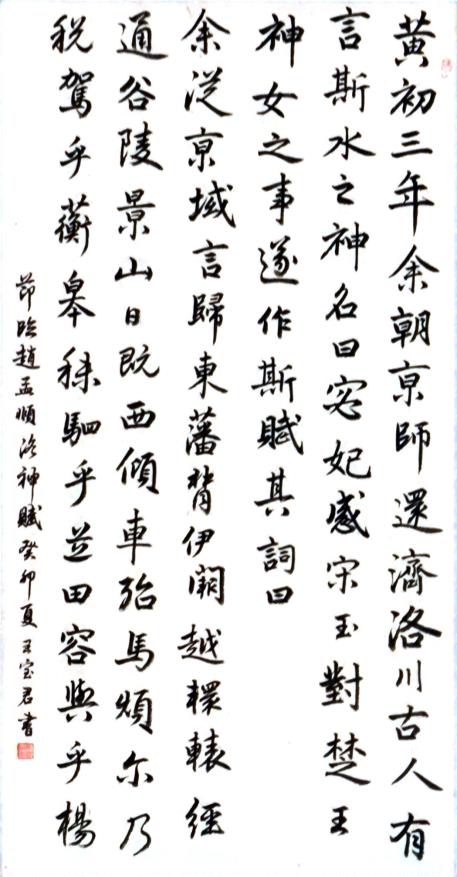 黄初三年余朝京師還濟洛川古人有
言斯水之神名曰宓妃感宋玉對楚王
神女之事遂作斯賦其詞曰
余從京域言歸東藩背伊闕越轘轅經
通谷陵景山日既西傾車殆馬煩尔乃
税駕乎蘅皋秣駟乎芝田容與乎楊
節臨趙孟頫洛神賦癸卯夏王宝君書